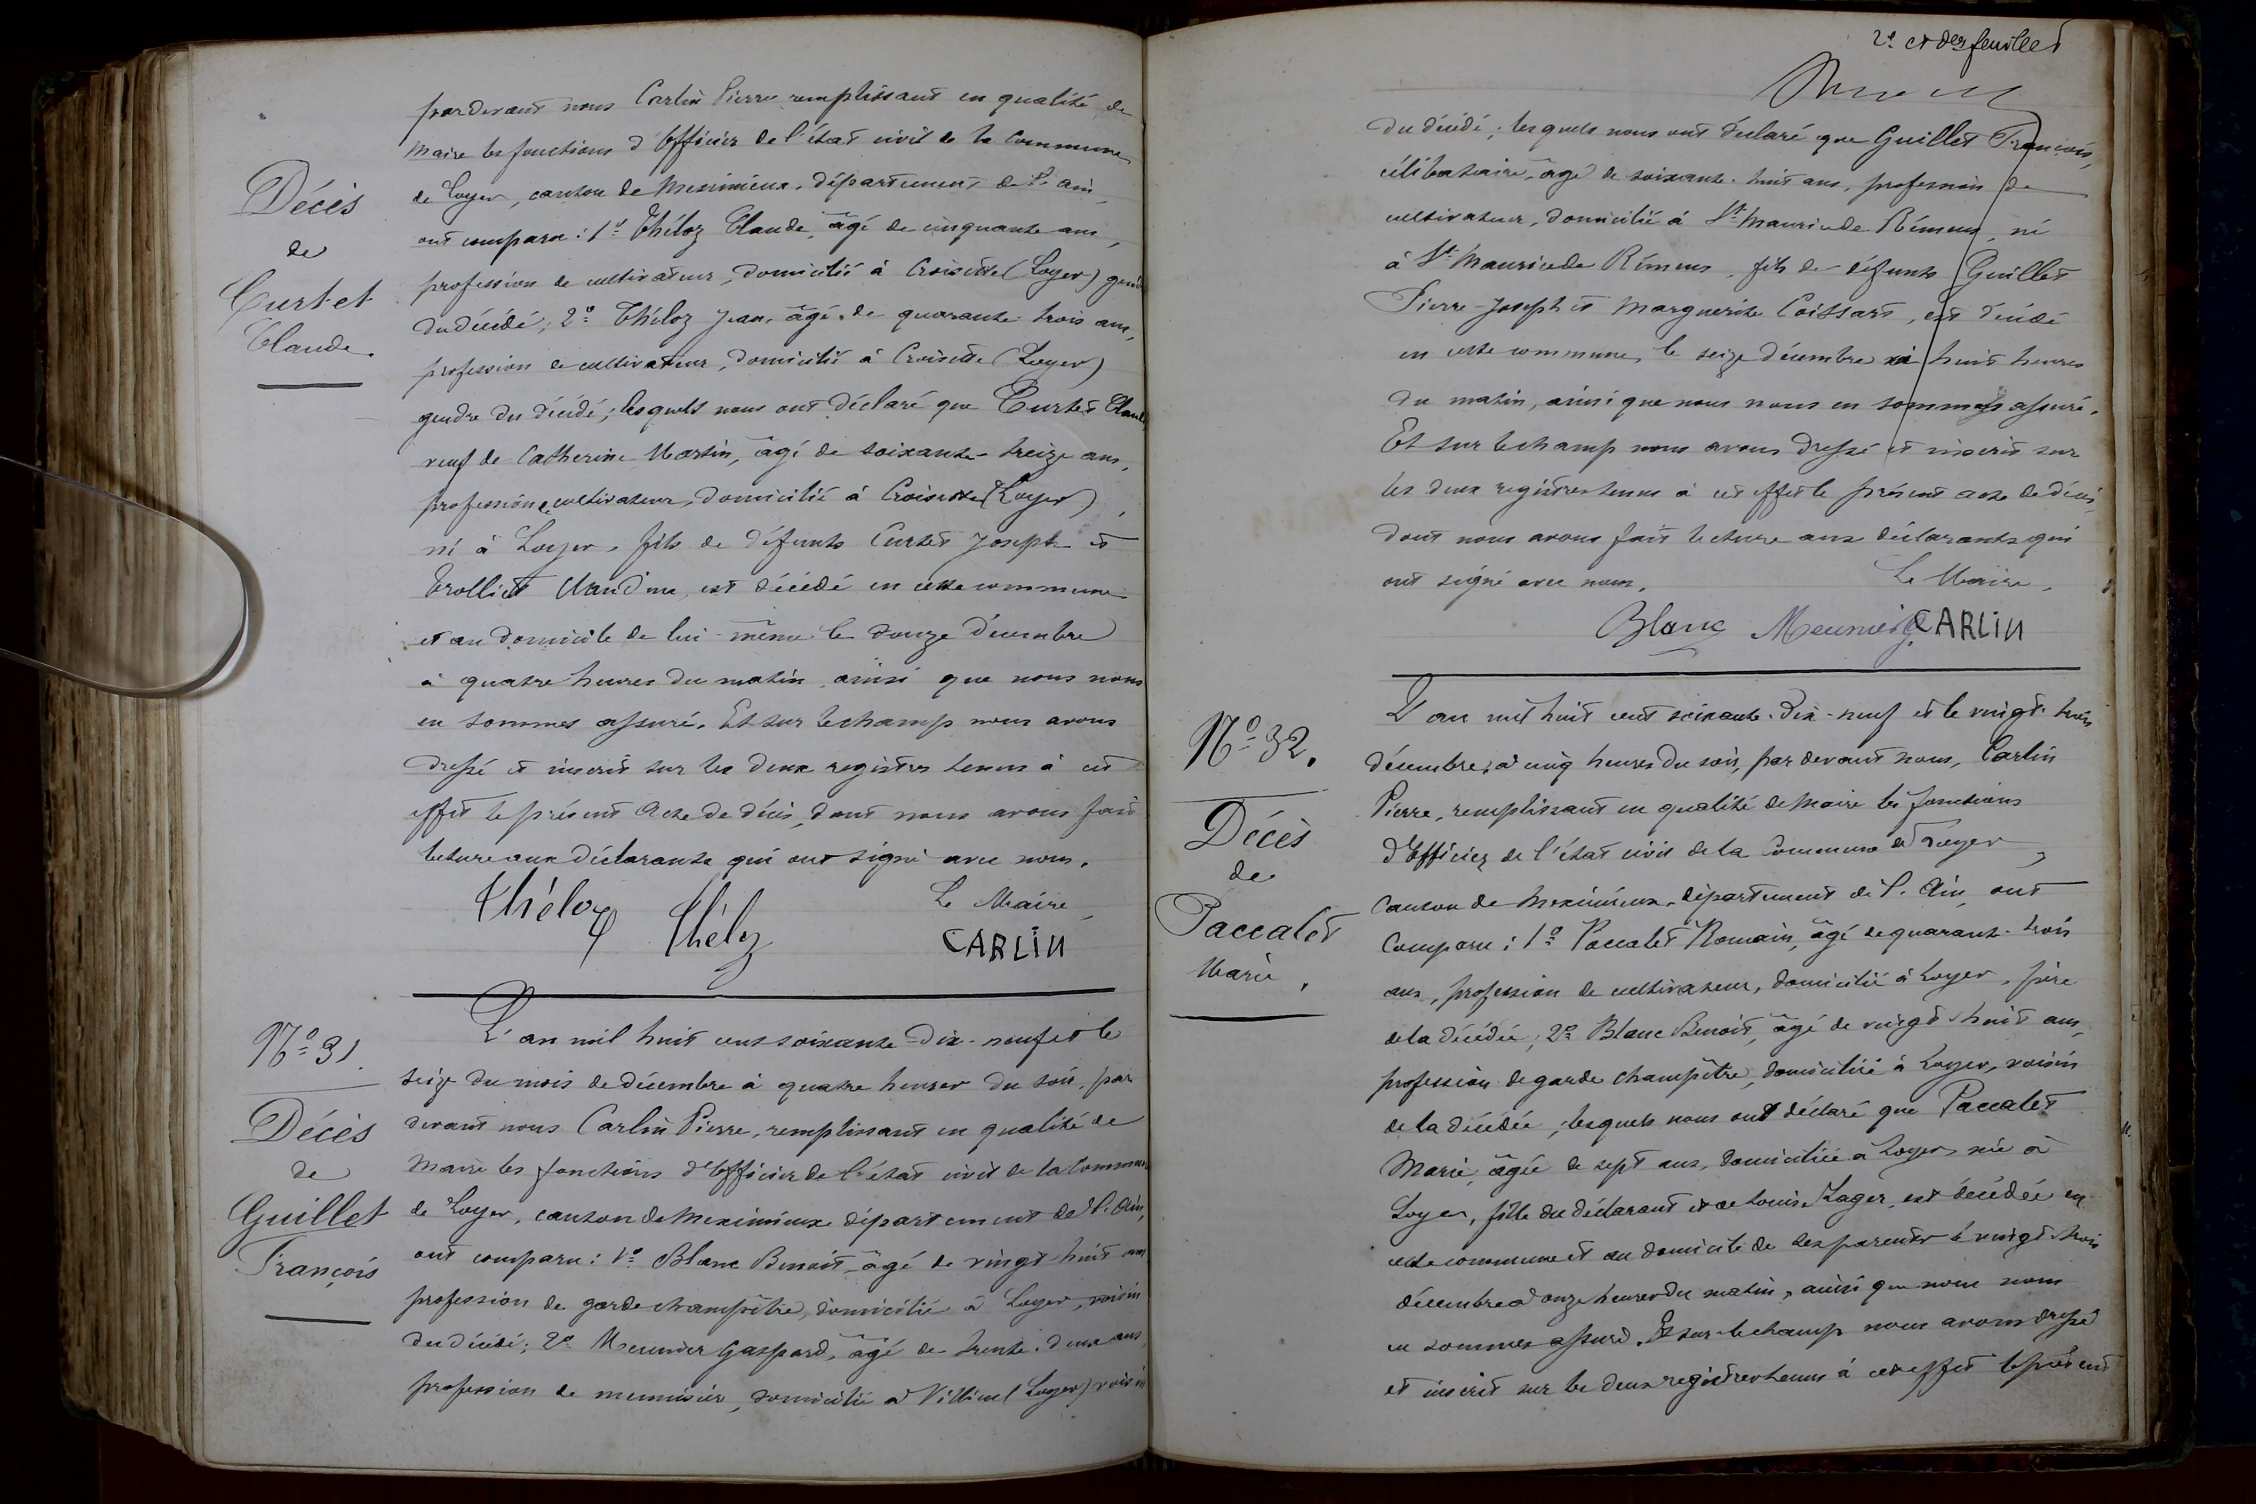 Décès
de
Curtet
Claude.
par devant nous Carlin Pierre remplissant en qualité de
Maire les fonctions d'Officier de l'état civil de la Commune
de Loyes, canton de Meximieux, département de l'Ain,
ont comparu : 1º Théloz Claude, âgé de cinquante ans,
profession de cultivateur, domicilié à Croisette (Loyes) gendre
du décédé ; 2º Théloz Jean, âgé de quarante trois ans,
profession de cultivateur, domicilié à Croisette (Loyes)
gendre du décédé ; lesquels nous ont déclaré que Curtet Claude
veuf de Catherine Martin, âgé de soixante-treize ans,
profession de cultivateur, domicilié à Croisette (Loyes),
né à Loyes, fils de défunts Curtet Joseph et
Trolliet Claudine, est décédé en cette commune
et au domicile de lui-même le douze décembre
à quatre heures du matin, ainsi que nous nous
en sommes assuré. Et sur le champ nous avons
dressé et inscrit sur les deux registres tenus à cet
effet le présent Acte de décès, dont nous avons fait
lecture aux déclarants qui ont signé avec nous.
Le Maire,
Théloz Théloz CARLIN
Nº 31.
Décès
de
Guillet
François
L'an mil huit cent soixante-dix-neuf et le
seize du mois de décembre à quatre heures du soir, par
devant nous Carlin Pierre, remplissant en qualité de
Maire les fonctions d'Officier de l'état civil de la Commune
de Loyes, canton de Meximieux département de l'Ain,
ont comparu : 1º Blanc Benoit, âgé de vingt-huit ans
profession de garde champêtre, domicilié à Loyes, voisin
du décédé ; 2º Meunier Gaspard, âgé de trente-deux ans
profession de menuisier, domicilié à Villieu (Loyes) voisin
2e et der feuillet
du décédé ; lesquels nous ont déclaré que Guillet François,
célibataire, âgé de soixante-huit ans, profession de
cultivateur, domicilié à St Maurice de Rémens, né
à St Maurice de Rémens, fils de défunts Guillet
Pierre-Joseph et Marguerite Coissard, est décédé
en cette commune, le seize décembre à huit heures
du matin, ainsi que nous nous en sommes assuré.
Et sur le champ nous avons dressé et inscrit sur
les deux registres tenus à cet effet le présent acte de décès,
dont nous avons fait lecture aux déclarants qui
ont signé avec nous. Le Maire,
Blanc Meunier G. CARLIN
Nº 32.
Décès
de
Paccalet
Marie.
L'an mil huit cent soixante-dix-neuf et le vingt-trois
décembre, à cinq heures du soir, par devant nous, Carlin
Pierre, remplissant en qualité de Maire les fonctions
d'Officier de l'état civil de la Commune de Loyes,
canton de Meximieux, département de l'Ain, ont
comparu : 1º Paccalet Romain, âgé de quarante-trois
ans, profession de cultivateur, domicilié à Loyes, père
de la décédée ; 2º Blanc Benoit, âgé de vingt-huit ans,
profession de garde champêtre, domicilié à Loyes, voisin
de la décédée ; lesquels nous ont déclaré que Paccalet
Marie, âgée de sept ans, domiciliée à Loyes née à
Loyes, fille du déclarant et de Louise Lager, est décédée en
cette commune et au domicile de ses parents le vingt-trois
décembre à onze heures du matin, ainsi que nous nous
en sommes assuré. Et sur le champ nous avons dressé
et inscrit sur les deux registres tenus à cet effet le présent